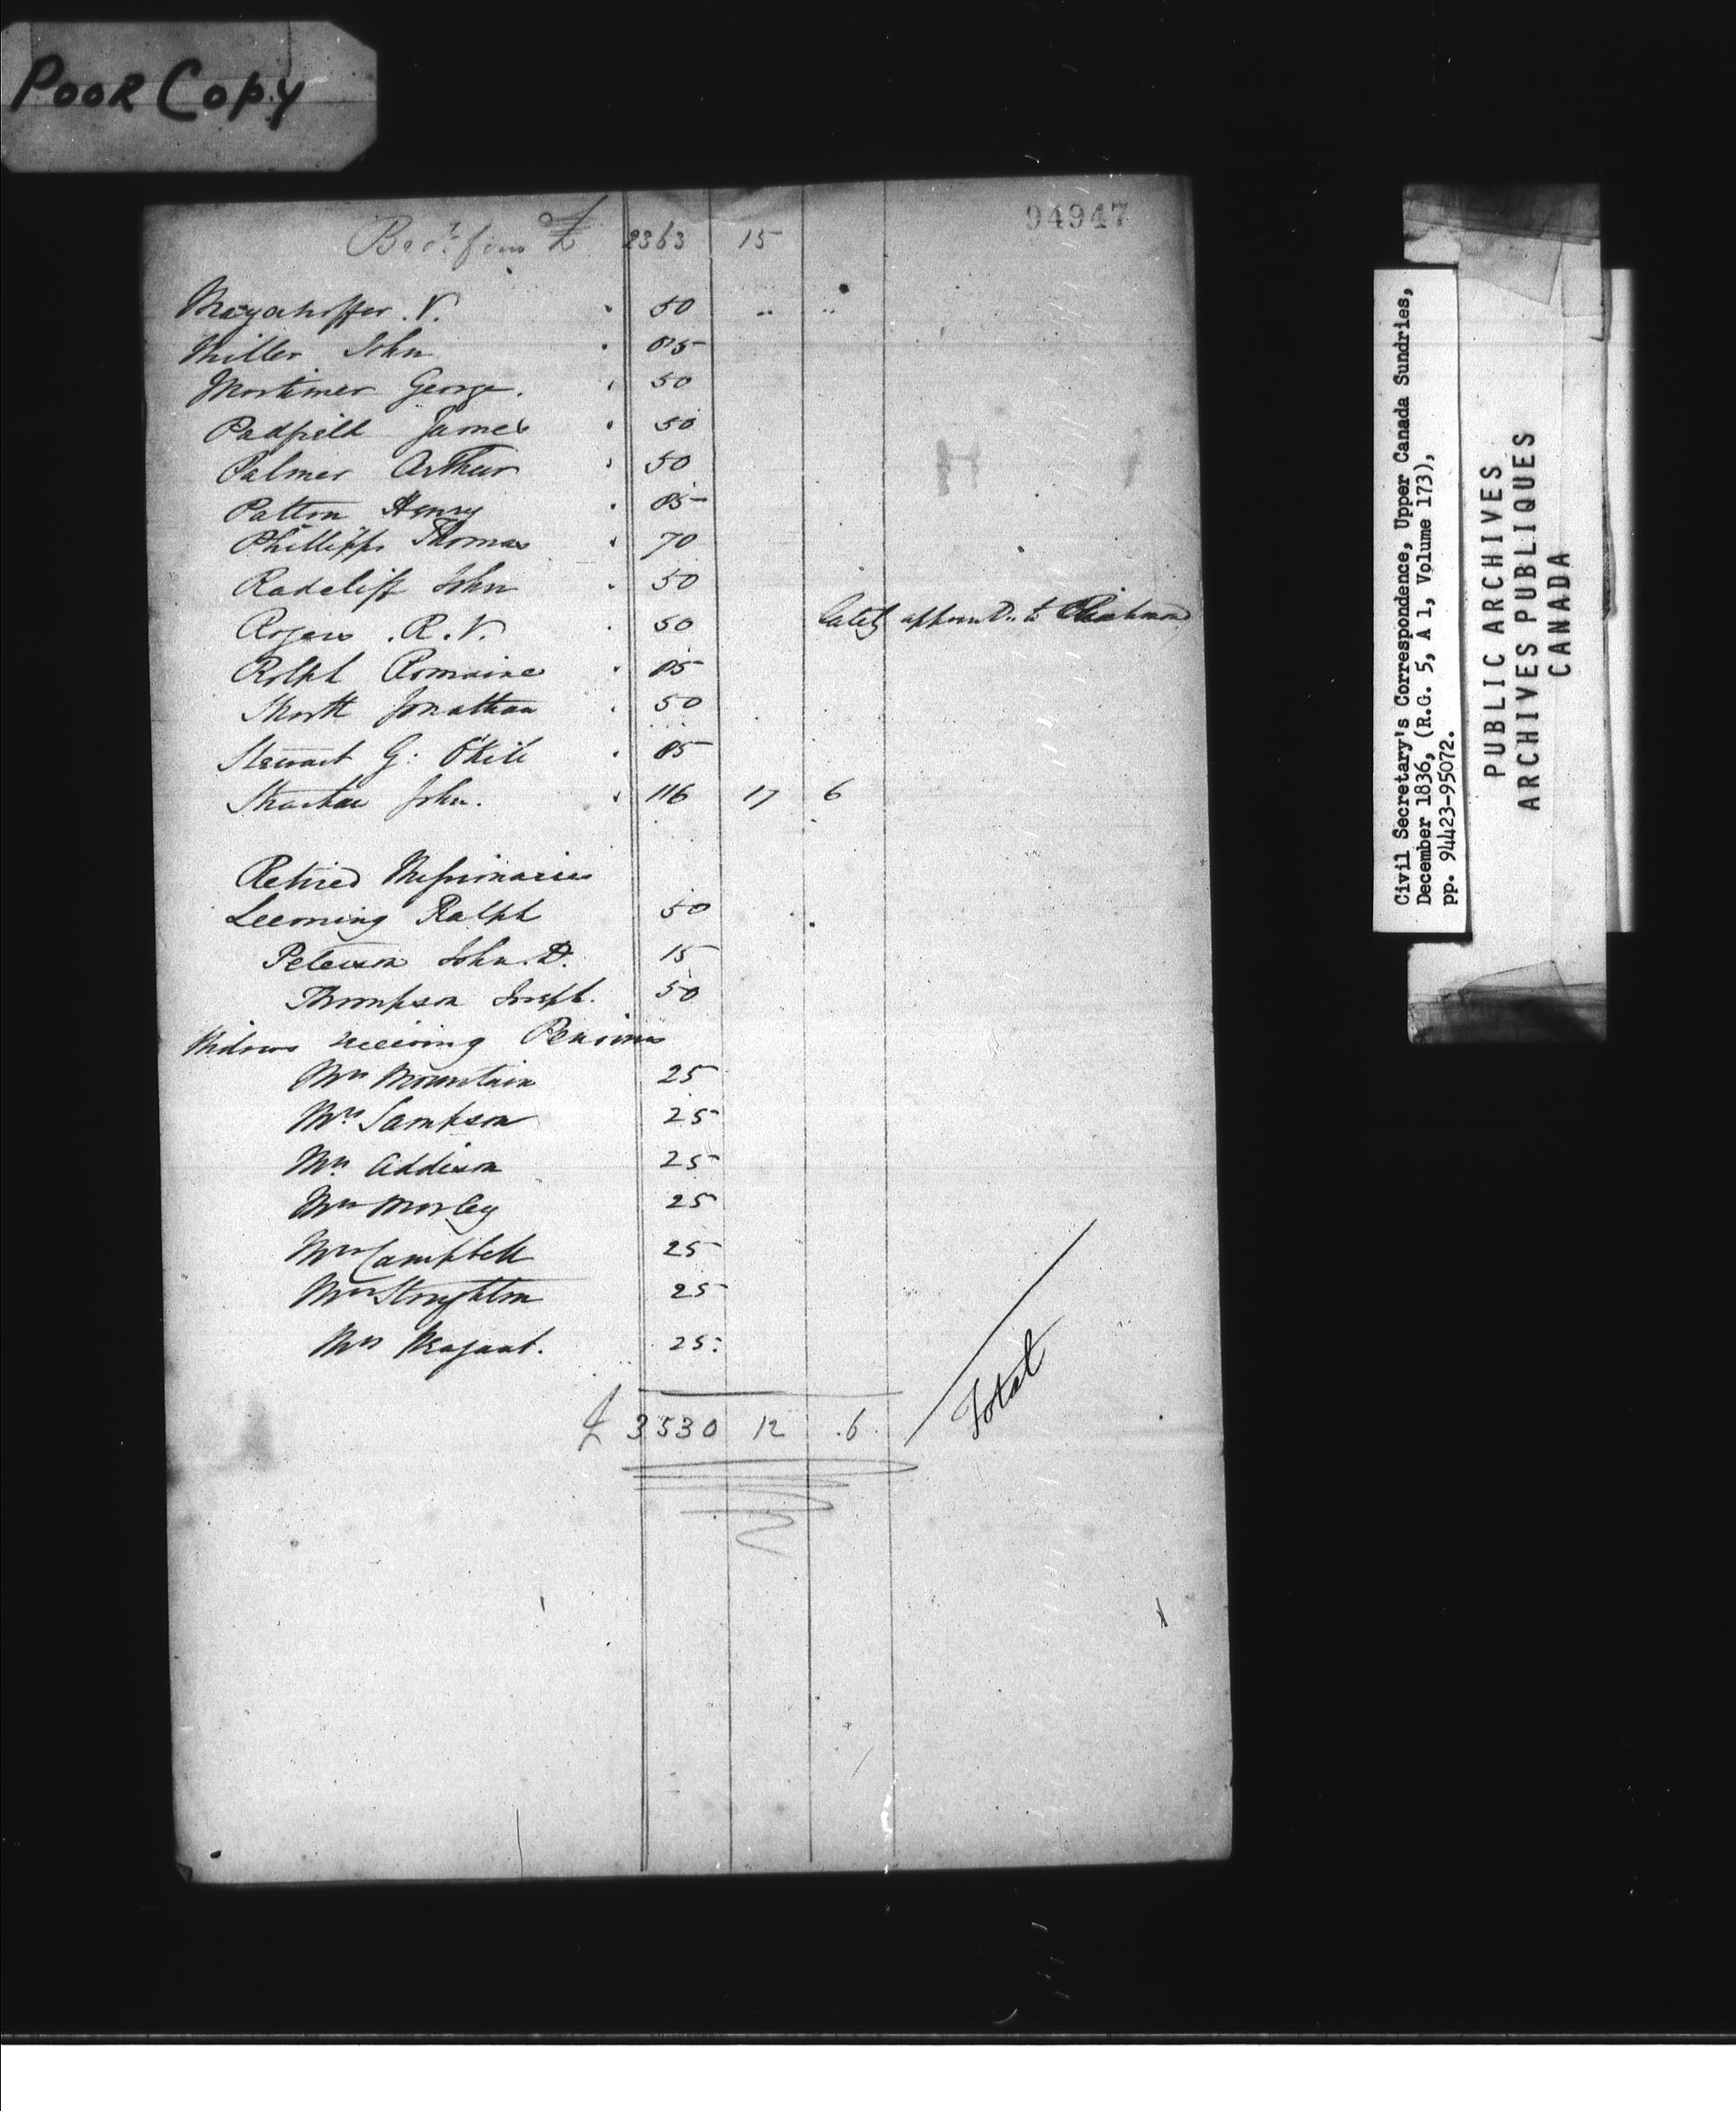 Poor Copy
94947
Brot. forw. £ 2363 15
Mayerhoffer . V. 50 " "
Miller John 85
Mortimer George . 50
Padfield James 50
Palmer Arthur 50
Patton Henry 85
Phillipps Thomas 70
Radcliff John 50
Rogers . R. V. 50 lately appointd. to Richmond
Rolph Romaine 85
Short Jonathan 50
Stewart G: O'Kill 85
Strachan John . 116 17 6
Retired Missionaries
Leeming Ralph 50
Peterson John . D. 15
Thompson Joseph . 50
Widows receiving Pensions
Mrs Mountain 25
Mrs. Sampson 25
Mrs. Addison 25
Mrs Morley 25
Mrs Campbell 25
Mrs Stoughton 25
Mrs Weagant . 25 :
£ 3530 12 . 6 .
Total
Civil Secretary's Correspondence, Upper Canada Sundries,
December 1836, (R.G. 5, A 1, Volume 173),
pp. 94423-95072.
PUBLIC ARCHIVES
ARCHIVES PUBLIQUES
CANADA